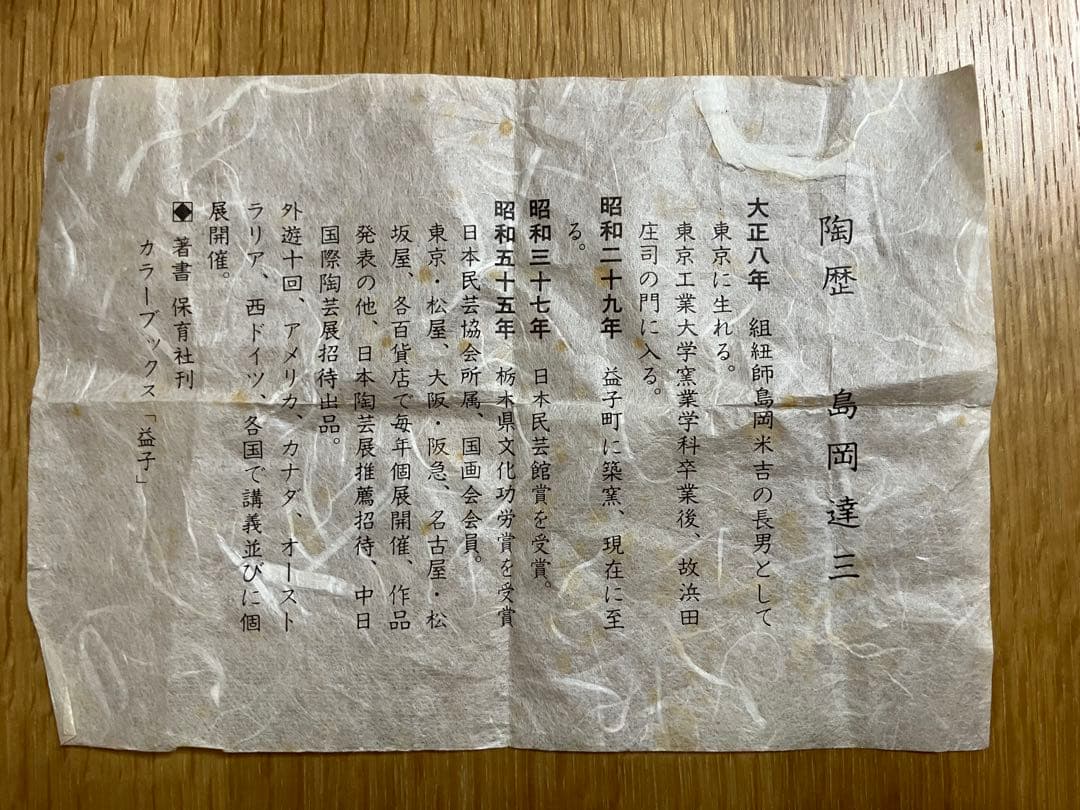 陶歴　島岡達三
大正八年　組紐師島岡米吉の長男として
東京に生れる。
東京工業大学窯業学科卒業後、故浜田
庄司の門に入る。
昭和二十九年　益子町に築窯、現在に至
る。
昭和三十七年　日本民芸館賞を受賞。
昭和五十五年　栃木県文化功労賞を受賞
日本民芸協会所属、国画会会員。
東京・松屋、大阪・阪急、名古屋・松
坂屋、各百貨店で毎年個展開催、作品
発表の他、日本陶芸展推薦招待、中日
国際陶芸展招待出品。
外遊十回、アメリカ、カナダ、オースト
ラリア、西ドイツ、各国で講義並びに個
展開催。
◆著書　保育社刊
カラーブックス「益子」